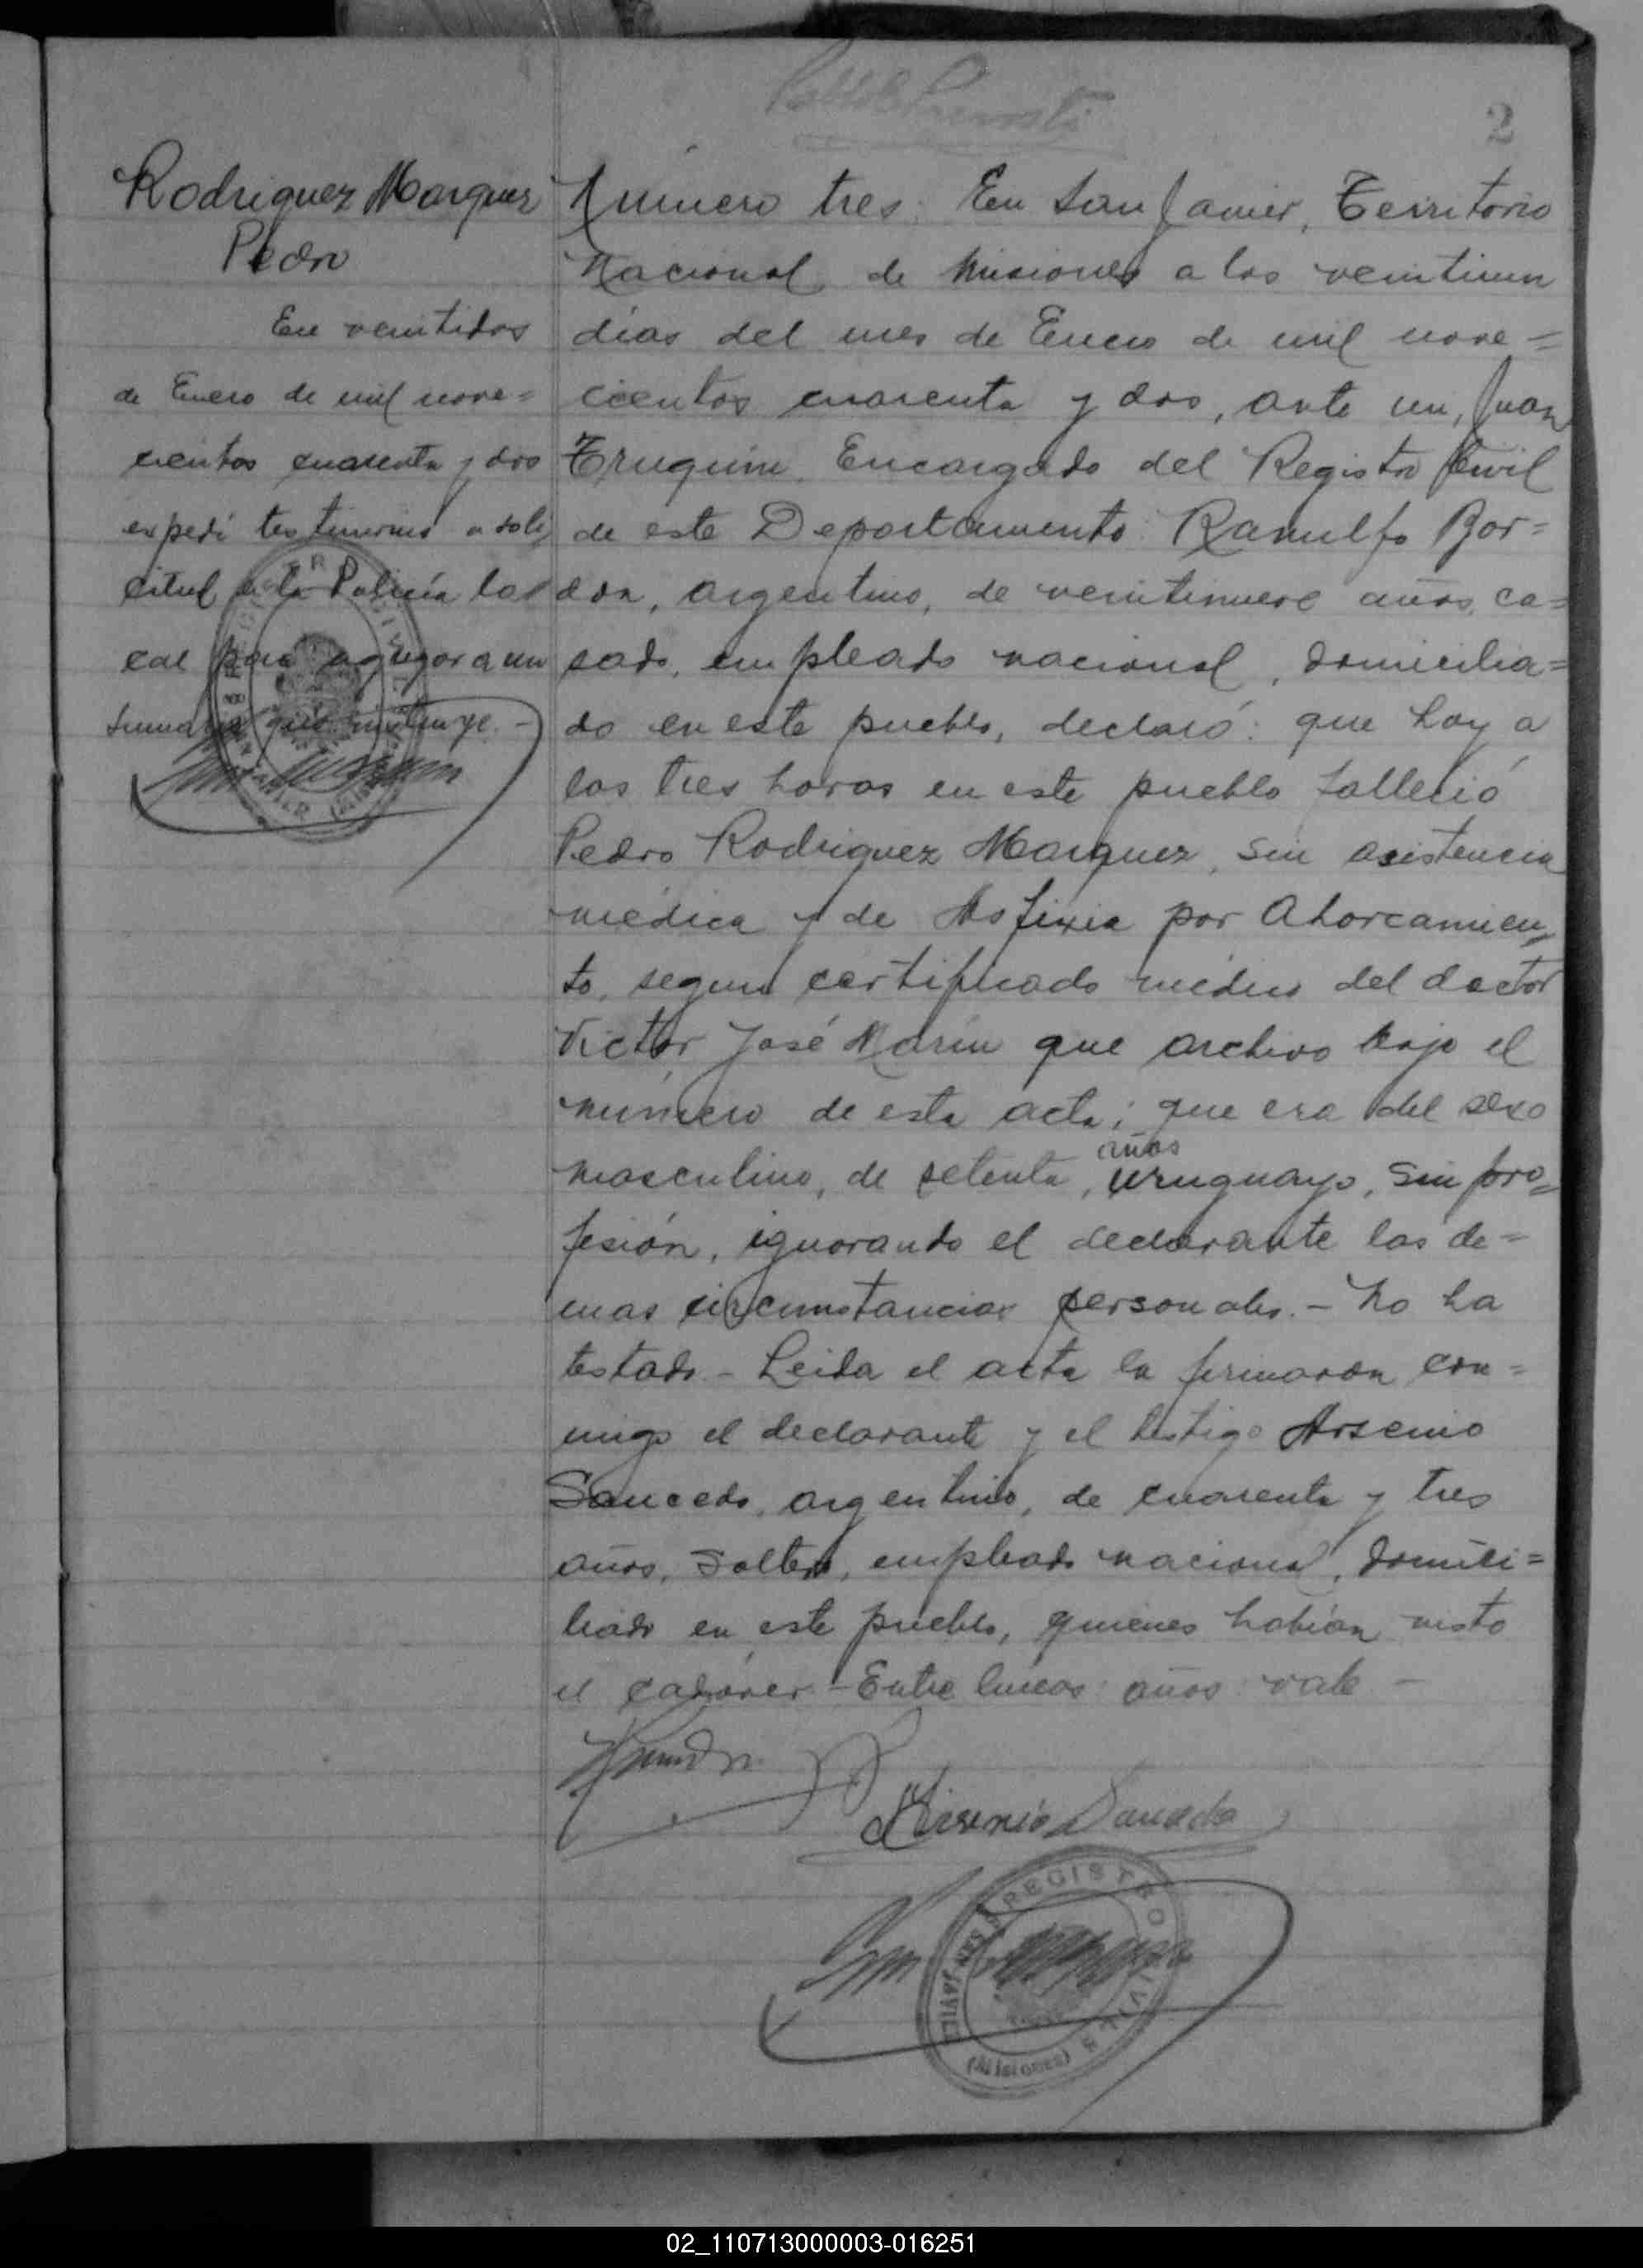 2
Rodriguez Marquez
Pedro
En veintidos
de Enero de mil nove=
cientos cuarenta y dos
expedí testimonio a soli
citud de la Policía lo
cal para agregar a un
sumario que instruye.-
Número tres. En San Javier, Territorio
Nacional de Misiones a los veintiun
días del mes de Enero de mil nove=
cientos cuarenta y dos, ante mi, Juan
Encargado del Registro Civil
de este Departamento: Ranulfo Bor=
don, argentino, de veintinueve años, ca=
sado, empleado nacional, domicilia=
do en este pueblo, declaró: que hoy a
las tres horas en este pueblo falleció
Pedro Rodriguez Marquez, sin asistencia
médica y de Asfixia por Ahorcamien=
to, segun certificado médico del doctor
Victor José Marin que archivo bajo el
número de esta acta; que era del sexo
masculino, de setenta años, uruguayo, sin pro=
fesión, ignorando el declarante las de=
mas circunstancias personales.- No ha
testado.- Leida el acta la firmaron con=
migo el declarante y el testigo Arsenio
Saucedo, argentino, de cuarenta y tres
años, soltero, empleado nacional, domici=
liado en este pueblo, quienes habían visto
el cadáver.- Entre lineas: años: vale -
Arsenio Saucedo
REGISTRO CIVIL
SAN JAVIER
(Misiones)
02_110713000003-016251